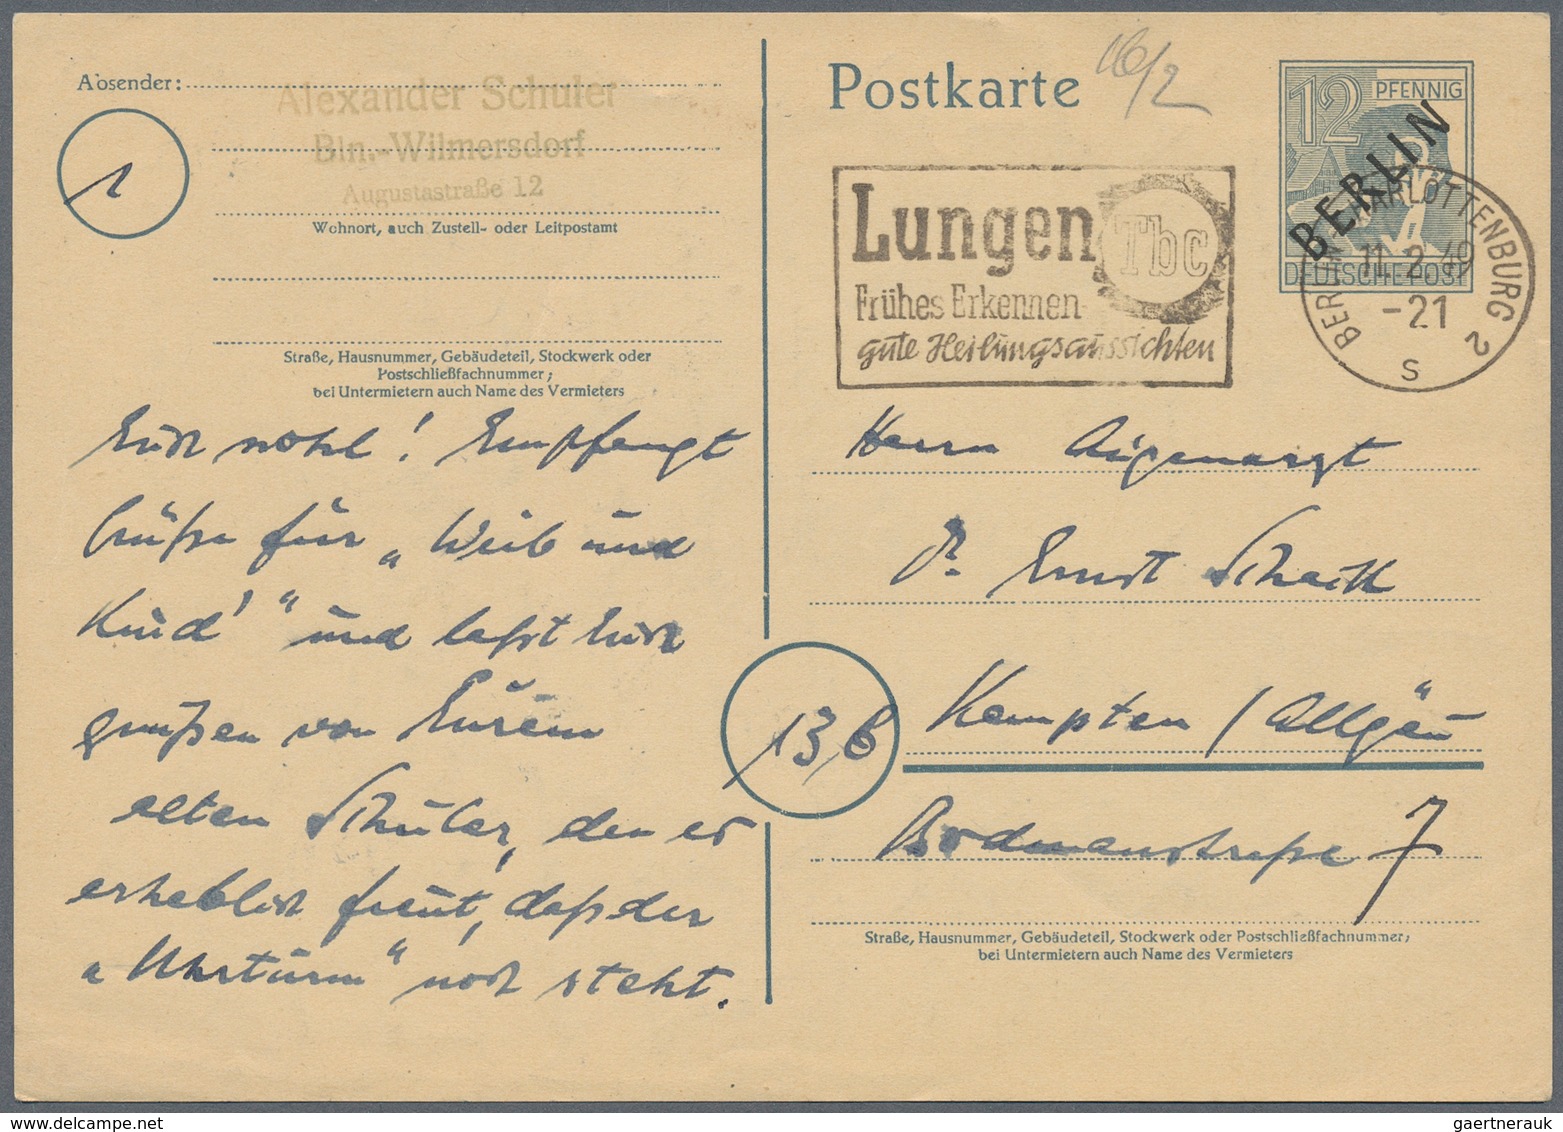 Absender:
Alexander Schuler
Bln.-Wilmersdorf
Augustastraße 12
Wohnort, auch Zustell- oder Leitpostamt
1
Straße, Hausnummer, Gebäudeteil, Stockwerk oder
Postschließfachnummer;
bei Untermietern auch Name des Vermieters
Euch wohl! Empfangt
Grüße für „Weib und
Kind!“ und laßt Euch
grüßen von Eurem
alten Schüler, den es
erheblich freut, daß der
„Uhrturm“ noch steht.
Postkarte
16/2
12 PFENNIG
BERLIN
DEUTSCHE POST
Lungen Tbc
Frühes Erkennen-
gute Heilungsaussichten
BERLIN-CHARLOTTENBURG 2
11.2.49
-21
S
Herrn Augenarzt
Dr. Ernst
13b
Kempten / Allgäu
Bodmanstraße 7
Straße, Hausnummer, Gebäudeteil, Stockwerk oder Postschließfachnummer;
bei Untermietern auch Name des Vermieters
gaertnerauk